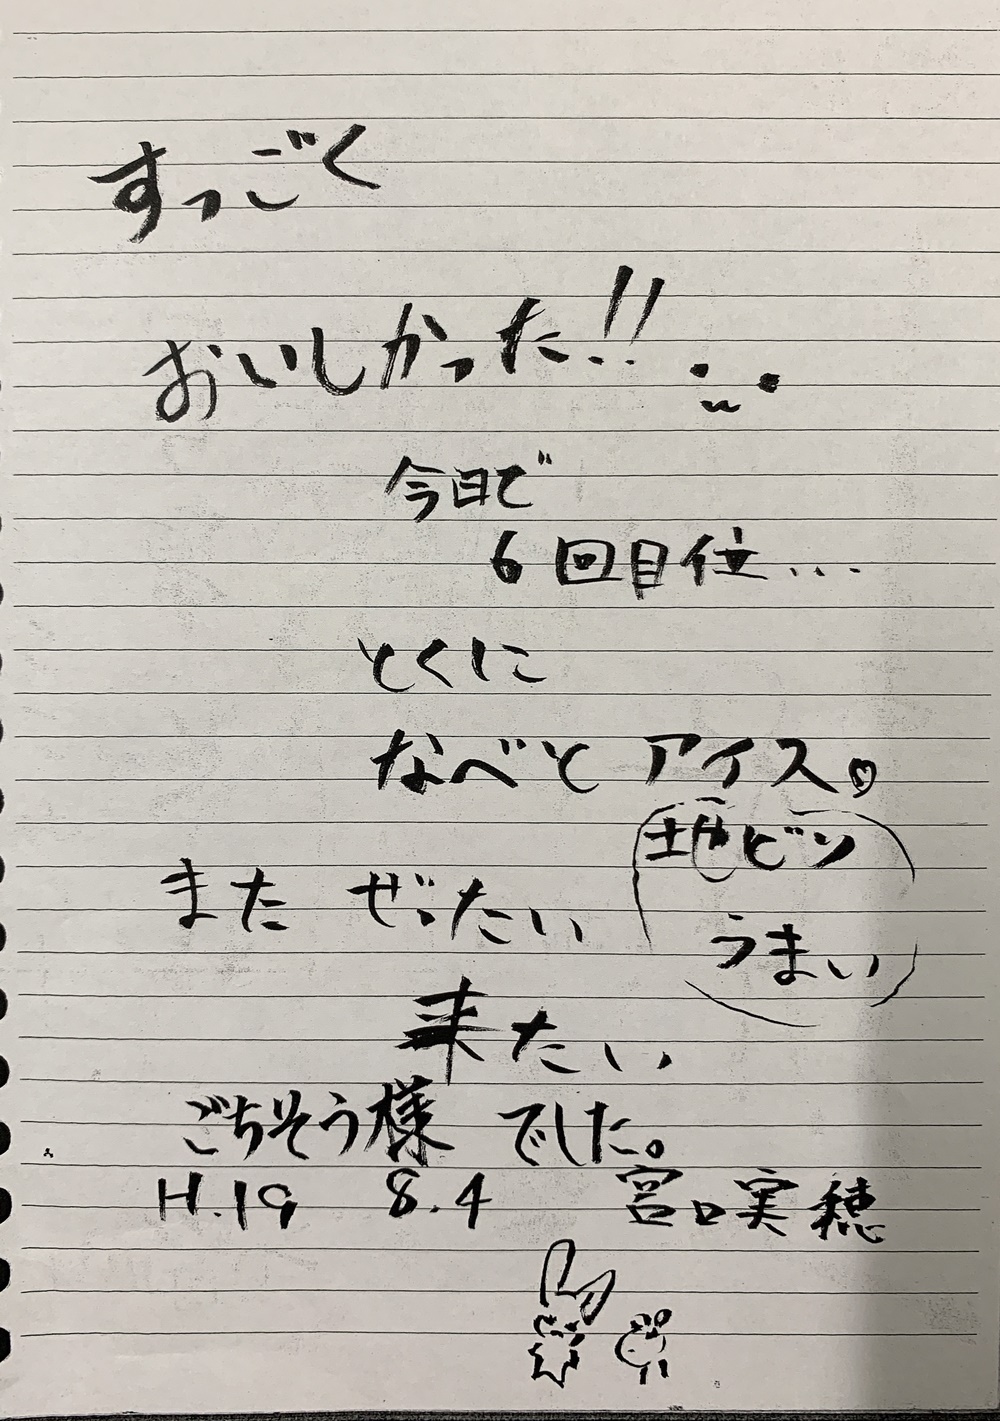 すっごく
おいしかった!!
今日で
6回目位...
とくに
なべと アイス。
地ビール
うまい
また ぜったい
来たい
ごちそう様 でした。
H.19 8.4 宮口実穂